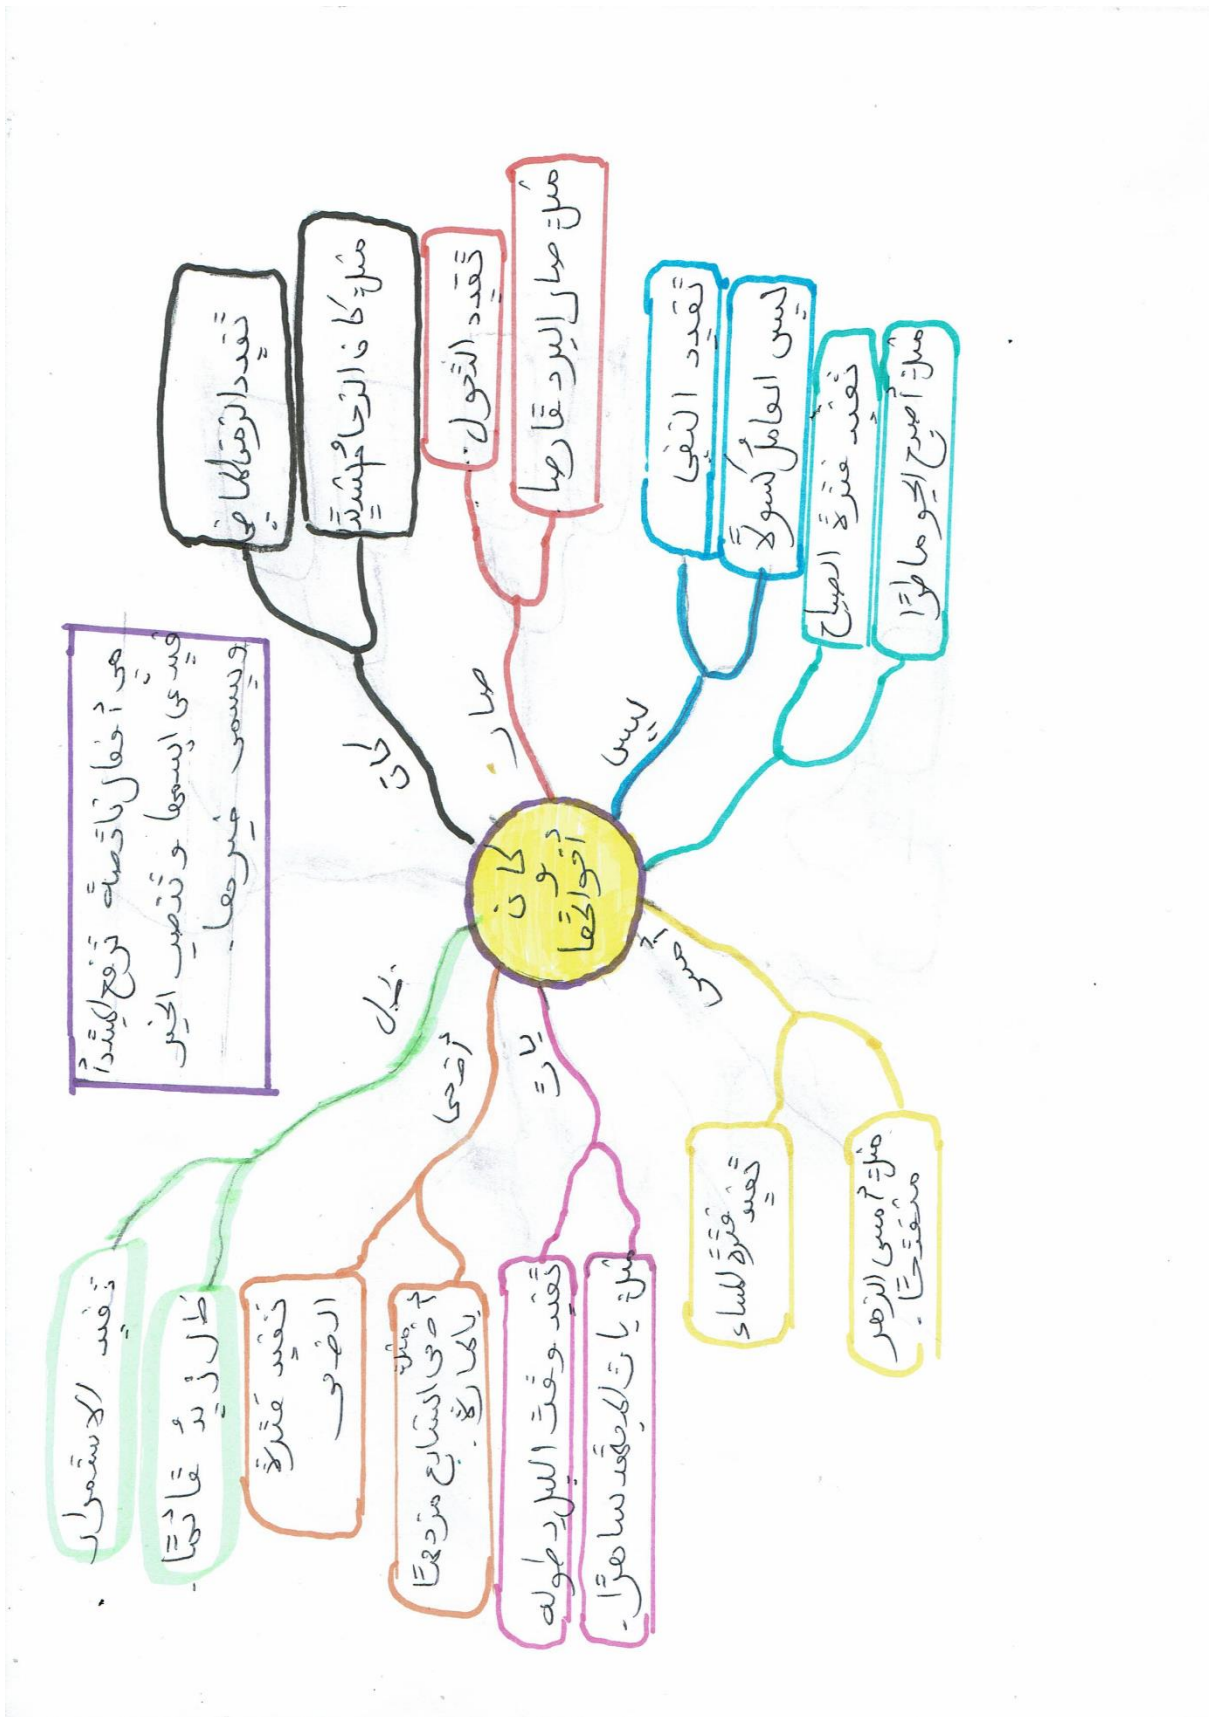 هي أفعال ناقصة ترفع المبتدأ
فيدعى اسمها و تنصب الخبر
ويسمى خبرها.
كان
و
أخواتها
كان
تفيد الزمن الماضي
مثل: كان الزحام شديدًا
صار
تفيد التحول.
مثل: صار البرد قارصا
ليس
تفيد النفي
ليس العاملُ كسولاً
تفيد فترة الصباح
مثل: أصبح الجو ماطرًا
تفيد
فترة المساء
مثل: أمسى الزهر
متفتحًا.
بات
تفيد وقت الليل بطوله
مثل: بات المجتهد ساهرًا.
أضحى
تفيد فترة
الضحى
مثل:
أضحى الشارع مزدحمًا
بالمارة.
ظل
تفيد الاستمرار
ظل زيدٌ قائمًا.